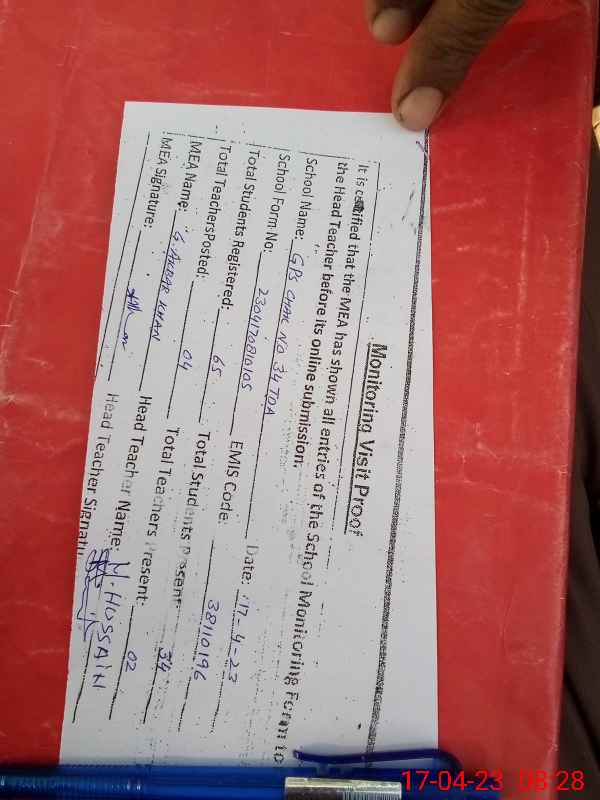 Monitoring Visit Proof
It is certified that the MEA has shown all entries of the School Monitoring Form to
the Head Teacher before its online submission.
School Name: GPS CHAK NO 34 TDA Date: 17-4-23
School Form No: 230417081010S EMIS Code: 38110196
Total Students Registered: 65 Total Students Present: 34
Total Teachers Posted: 04 Total Teachers Present: 02
MEA Name: G. AKBAR KHAN Head Teacher Name: M. HUSSAIN
MEA Signature: Head Teacher Signatu
17-04-23 08:28